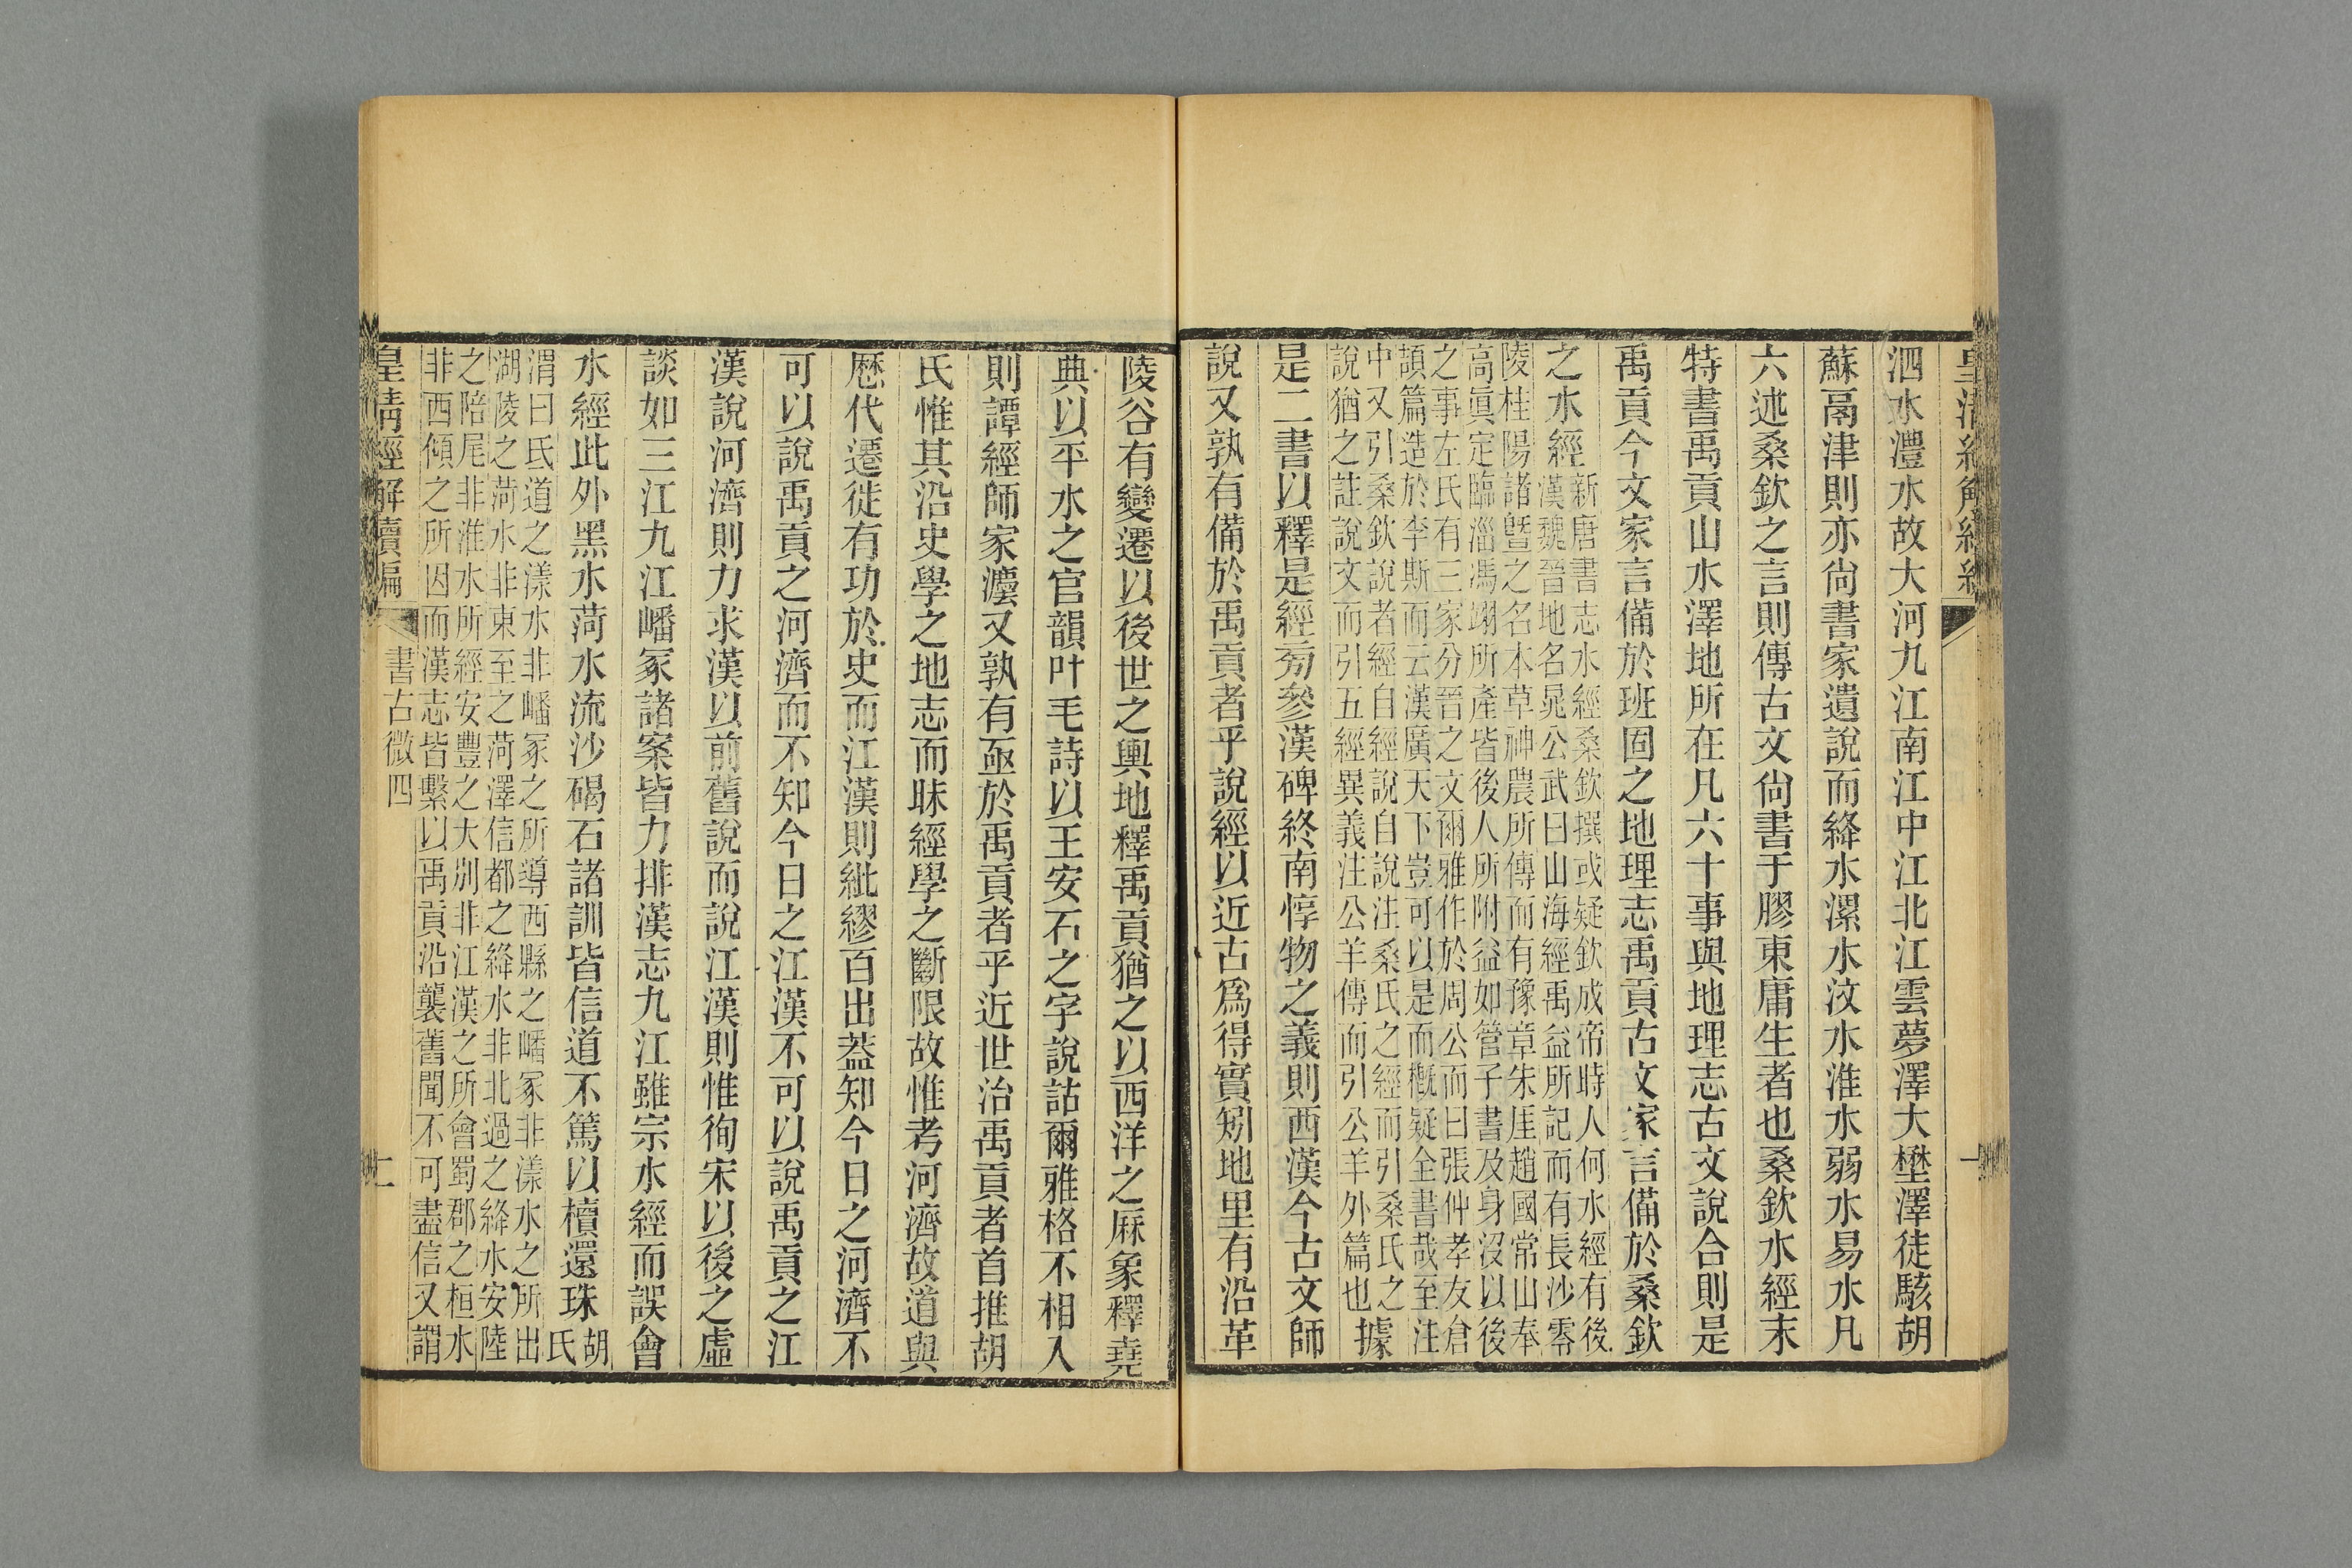 皇清經解續編
泗水澧水故大河九江南江中江北江雲夢澤大壄澤徒駭胡
蘇鬲津則亦尙書家遺說而絳水漯水汶水淮水弱水易水凡
六述桑欽之言則傳古文尙書于膠東庸生者也桑欽水經末
特書禹貢山水澤地所在凡六十事與地理志古文說合則是
禹貢今文家言備於班固之地理志禹貢古文家言備於桑欽
之水經
新唐書志水經桑欽撰或疑欽成帝時人何水經有後
漢魏晉地名晁公武曰山海經禹益所記而有長沙零
陵桂陽諸曁之名本草神農所傳而有豫章朱厓趙國常山奉
高眞定臨淄馮翊所產皆後人所附益如管子書及身沒以後
之事左氏有三家分晉之文爾雅作於周公而曰張仲孝友倉
頡篇造於李斯而云漢廣天下豈可以是而槪疑全書哉至注
中又引桑欽說者經自經說自說注桑氏之經而引桑氏之
說猶之註說文而引五經異義注公羊傳而引公羊外篇也
據
是二書以釋是經㫄參漢碑終南惇物之義則西漢今古文師
說又孰有備於禹貢者乎說經以近古爲得實矧地里有沿革
陵谷有變遷以後世之輿地釋禹貢猶之以西洋之厤象釋堯
典以平水之官韻叶毛詩以王安石之字說詁爾雅格不相入
則譚經師家灋又孰有亟於禹貢者乎近世治禹貢者首推胡
氏惟其沿史學之地志而昧經學之斷限故惟考河濟故道與
歷代遷徙有功於史而江漢則紕繆百出葢知今日之河濟不
可以說禹貢之河濟而不知今日之江漢不可以說禹貢之江
漢說河濟則力求漢以前舊說而說江漢則惟徇宋以後之虛
談如三江九江嶓冢諸案皆力排漢志九江雖宗水經而誤會
水經此外黑水菏水流沙碣石諸訓皆信道不篤以櫝還珠
胡
氏
渭曰氐道之漾水非嶓冢之所導西縣之嶓冢非漾水之所出
湖陵之菏水非東至之菏澤信都之絳水非北過之絳水安陸
之陪尾非淮水所經安豐之大別非江漢之所會蜀郡之桓水
非西傾之所因而漢志皆繫以禹貢沿襲舊聞不可盡信又謂
皇淸經解續編
書古微四